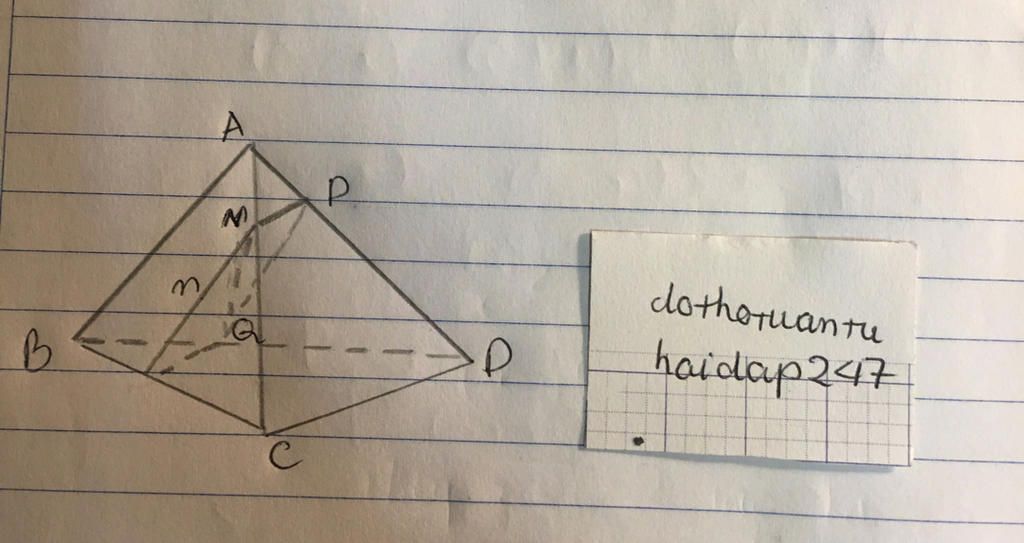 A
P
M
n
Q
B
D
C
dothotuantu
haidap247